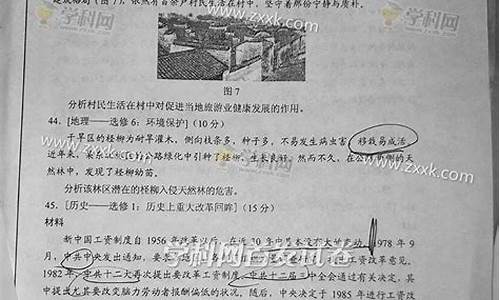 建成格局(图7),依然有百余户村民生活在村中,坚守着那份宁静与质朴。
图7
分析村民生活在村中对促进当地旅游业健康发展的作用。
44. [地理——选修6:环境保护](10分)
干旱区的柽柳为耐旱灌木,侧向枝条多,种子多,不易发生病虫害,移栽易成活。
近年来,某 公路绿化中引种了柽柳,生长良好。然而不久,在公路 侧的天
然林中,发现了柽柳幼苗。
分析该林区潜在的柽柳入侵天然林的危害。
45. [历史——选修1:历史上重大改革回眸](15分)
材料
新中国工资制度自1956年改革以后,在近30年中基本没有大的变动。1978年9
月,中共中央发出通知,要求 工资改革意见。
1982年,中共十二大再次提出要改革工资制度,中共十二届三中全会通过有关决定,其
中提出尤其要改变脑力劳动者报酬偏低的状况。随后,中央决定于1985年进行工资改
学科网
www.zxxk.com
学科网首发试卷